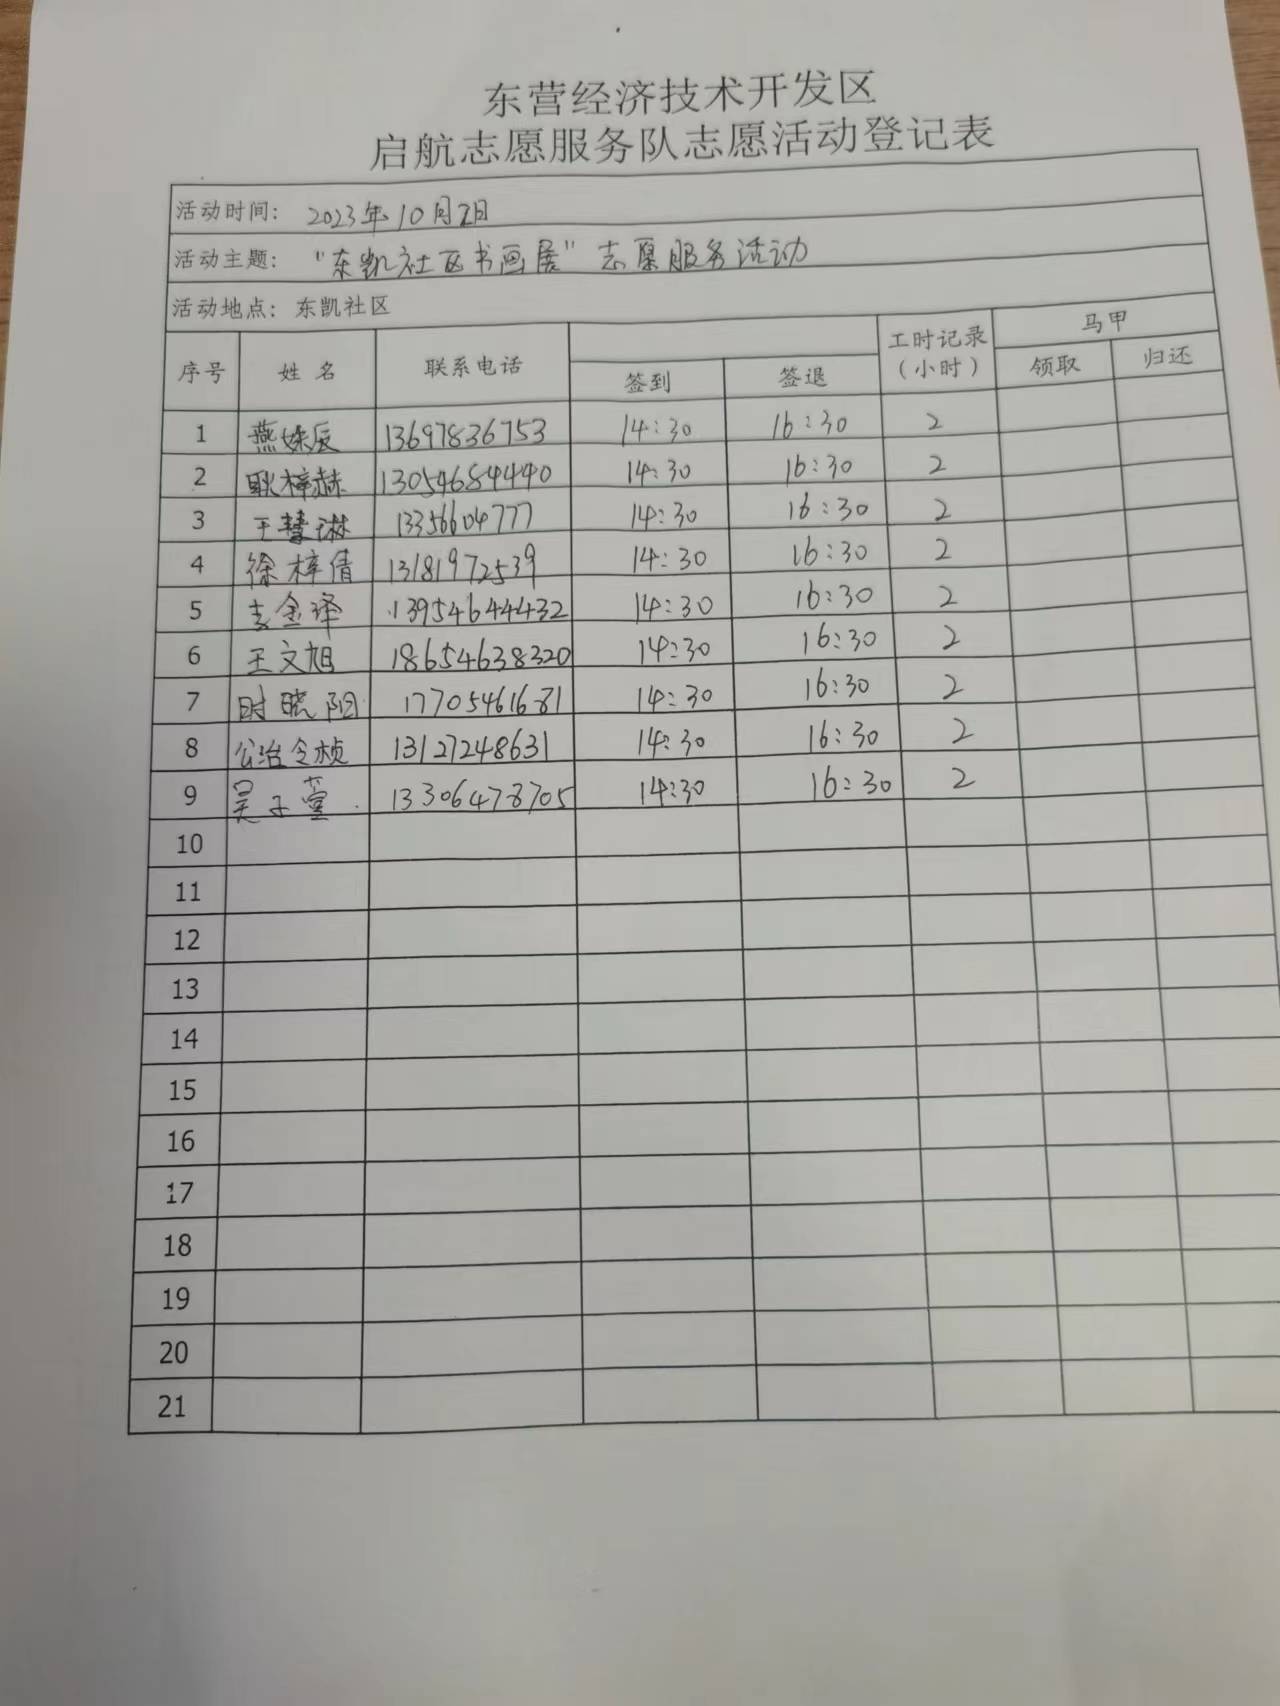 东营经济技术开发区
启航志愿服务队志愿活动登记表
活动时间: 2023年10月2日
活动主题: "东凯社区书画展"志愿服务活动
活动地点: 东凯社区
序号 姓名 联系电话 签到 签退 工时记录(小时) 马甲 领取 归还
1 燕姝辰 13697836753 14:30 16:30 2
2 耿梓赫 13054684440 14:30 16:30 2
3 王慧琳 13356604777 14:30 16:30 2
4 徐梓倩 13181972539 14:30 16:30 2
5 金泽 13954644432 14:30 16:30 2
6 王文旭 18654638320 14:30 16:30 2
7 时晓阳 17705461681 14:30 16:30 2
8 公治令桢 13127248631 14:30 16:30 2
9 吴子萱 13306478705 14:30 16:30 2
10
11
12
13
14
15
16
17
18
19
20
21